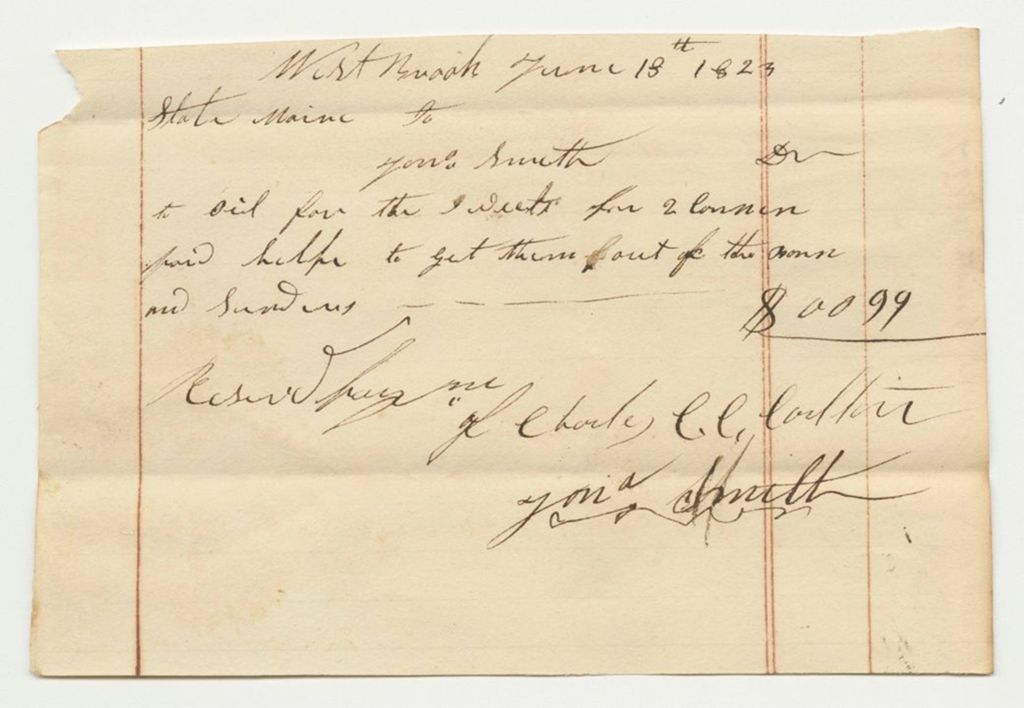 West Brook June 18th 1823
State Maine to
Jona Smith Dr
to oil for the wheels for 2 Cannon
paid helpe to get them out of the
and Sundres $ 00 99
Receivd pay me
of Charles C. C.
Jona Smith